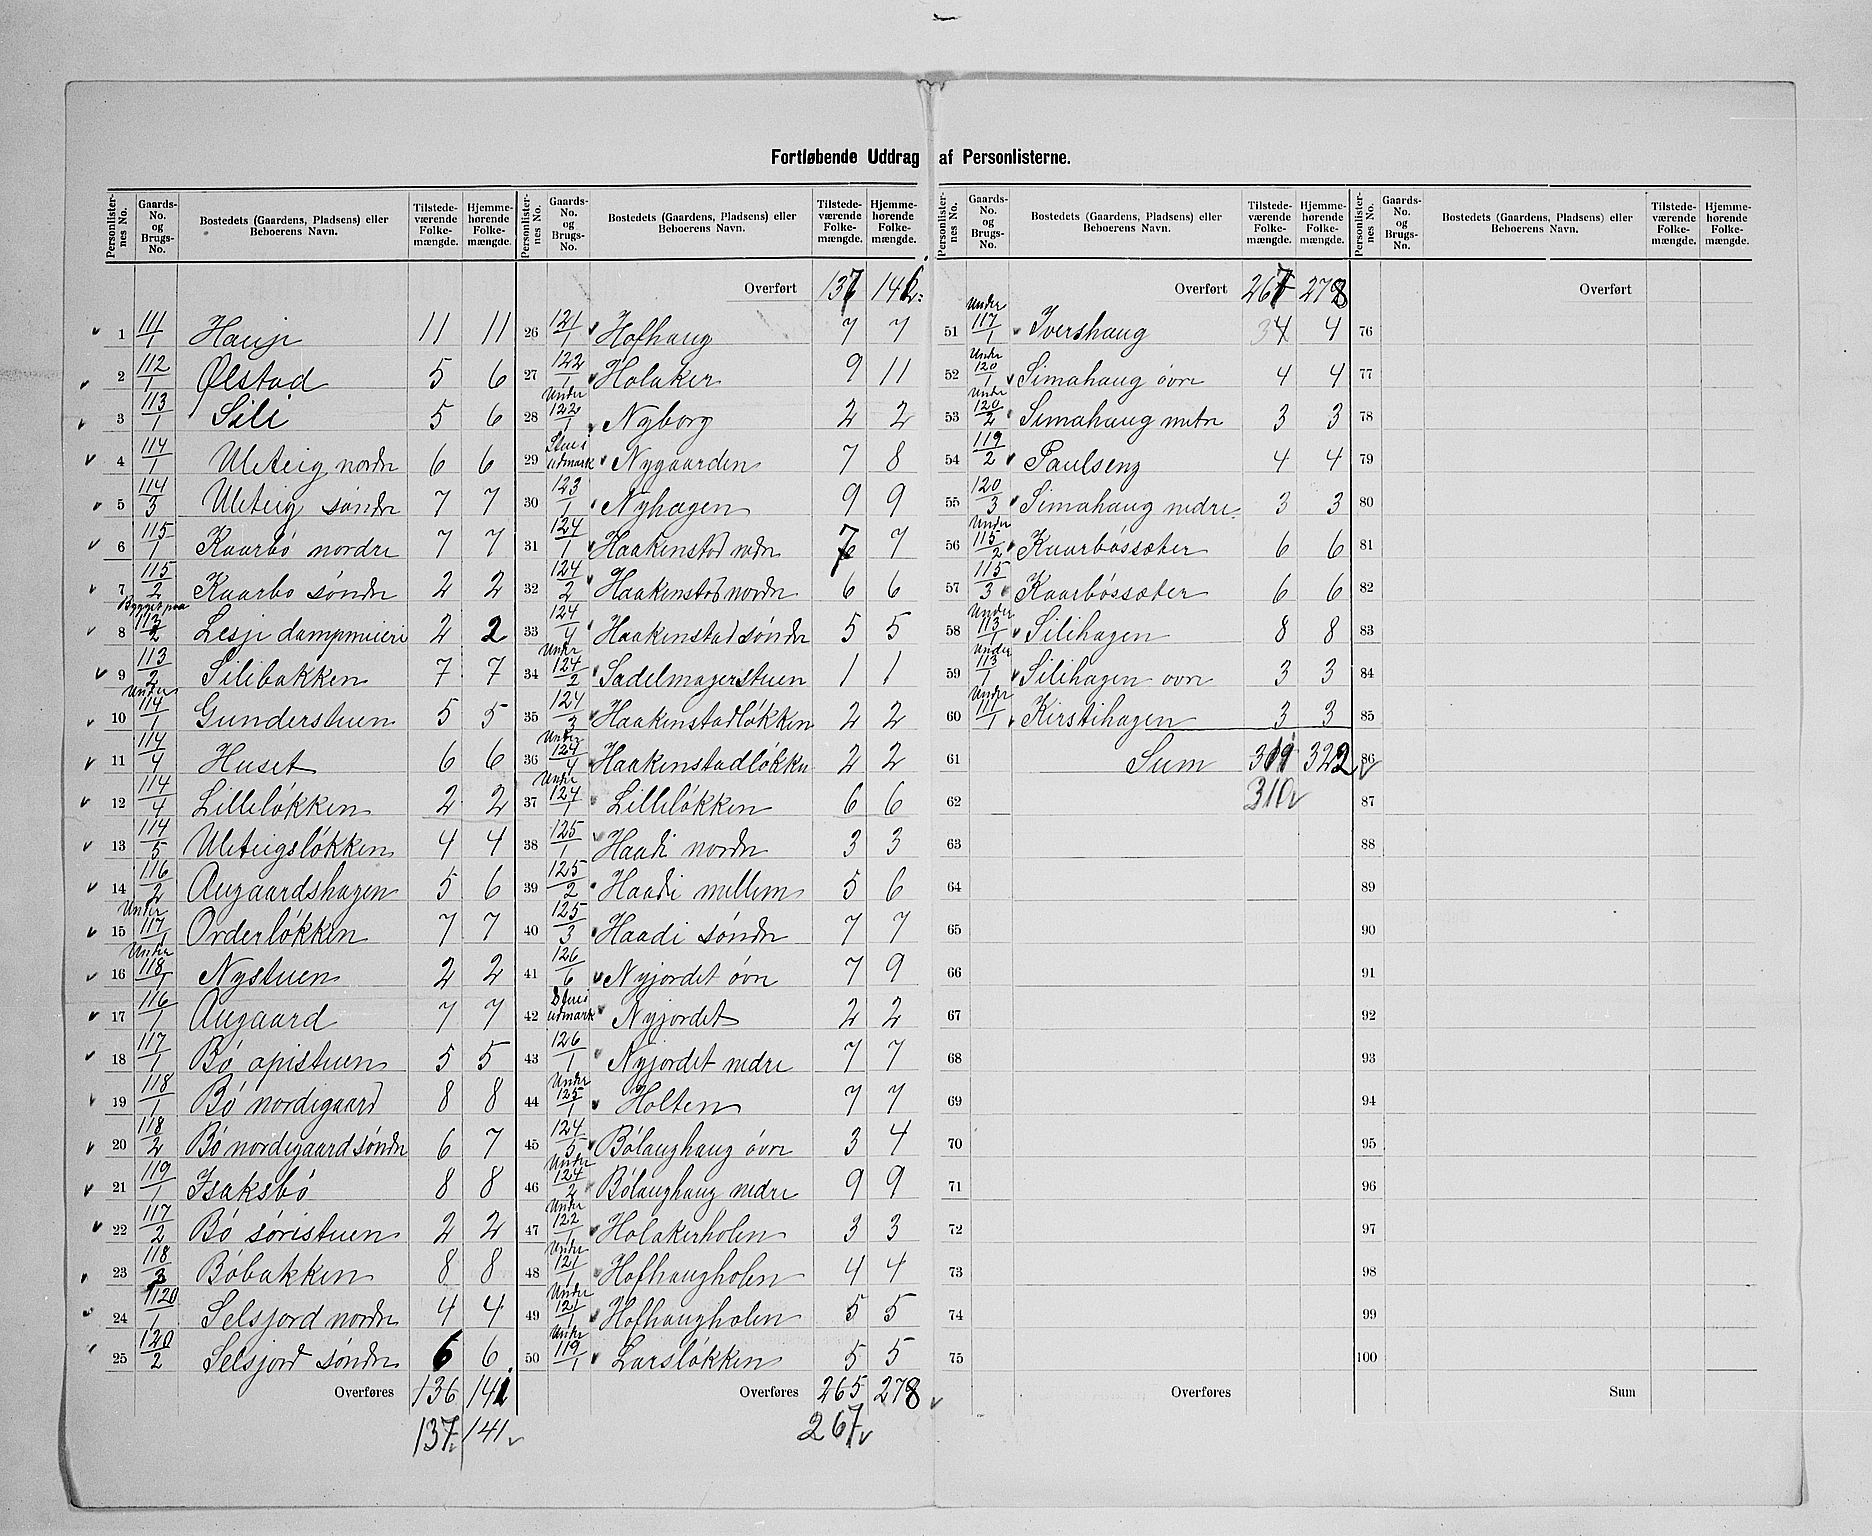 Fortløbende Uddrag af Personlisterne.
Personlister-nes No. | Gaards-No. og Brugs-No. | Bostedets (Gaardens, Pladsens) eller Beboerens Navn. | Tilstede-værende Folke-mængde. | Hjemme-hørende Folke-mængde.
1 111/1 Hauje 11 11
2 112/1 Ølstad 5 6
3 113/1 Sili 5 6
4 114/1 Uleteig nordre 6 6
5 114/3 Uleteig søndre 7 7
6 115/1 Kaarbø nordre 7 7
7 115/2 Kaarbø søndre 2 2
8 Bygget paa 113/2 Lesje dampmeieri 2 2
9 113/2 Silibakken 7 7
10 Under 114/1 Gunderstuen 5 5
11 114/4 Huset 6 6
12 114/4 Lilleløkken 2 2
13 114/5 Uleteigsløkken 4 4
14 116/2 Augaardshagen 5 6
15 Under 117/1 Orderløkken 7 7
16 Under 118/1 Nystuen 2 2
17 116/1 Augaard 7 7
18 117/1 Bø opistuen 5 5
19 118/1 Bø nordigaard 8 8
20 118/2 Bø nordigaard søndre 6 7
21 119/1 Isaksbø 8 8
22 117/2 Bø søristuen 2 2
23 118/3 Bøbakken 8 8
24 120/1 Selsjord nordre 4 4
25 120/2 Selsjord søndre 6 6
Overføres 136 141
137 141
Personlister-nes No. | Gaards-No. og Brugs-No. | Bostedets (Gaardens, Pladsens) eller Beboerens Navn. | Tilstede-værende Folke-mængde. | Hjemme-hørende Folke-mængde.
Overført 137 141
26 121/1 Hofhaug 7 7
27 122/1 Holaker 9 11
28 Under 122/1 Nyborg 2 2
29 udmark Nygaarden 7 8
30 123/1 Nyhagen 9 9
31 124/1 Haakenstad nedre 7 7
32 124/2 Haakenstad nordre 6 6
33 124/4 Haakenstad søndre 5 5
34 Under 124/2 Sadelmagerstuen 1 1
35 124/3 Haakenstadløkken 2 2
36 Under 124/4 Haakenstadløkken 2 2
37 Under 124/1 Lilleløkken 6 6
38 125/1 Haadi nordre 3 3
39 125/2 Haadi mellem 5 6
40 125/3 Haadi søndre 7 7
41 126/6 Nyjordet øvre 7 9
42 udmark Nyjordet 2 2
43 126/1 Nyjordet nedre 7 7
44 Under 125/1 Holten 7 7
45 124/5 Bølaughaug øvre 3 4
46 Under 124/2 Bølaughaug nedre 9 9
47 Under 122/1 Holakerholen 3 3
48 Under 121/1 Hofhaugholen 4 4
49 Under 121/1 Hofhaugholen 5 5
50 Under 119/1 Larsløkken 5 5
Overføres 265 278
267
Personlister-nes No. | Gaards-No. og Brugs-No. | Bostedets (Gaardens, Pladsens) eller Beboerens Navn. | Tilstede-værende Folke-mængde. | Hjemme-hørende Folke-mængde.
Overført 267 278
51 Under 117/1 Ivershaug 4 4
52 Under 120/1 Simahaug øvre 4 4
53 Under 120/2 Simahaug metre 3 3
54 119/2 Paulseng 4 4
55 120/3 Simahaug nedre 3 3
56 Under 115/2 Kaarbøssæter 6 6
57 115/3 Kaarbøssæter 6 6
58 Under 113/1 Silihagen 8 8
59 Under 113/1 Silihagen øvre 3 3
60 Under 111/1 Kirstihagen 3 3
61 Sum 322
62 310
63
64
65
66
67
68
69
70
71
72
73
74
75
Overføres
Personlister-nes No. | Gaards-No. og Brugs-No. | Bostedets (Gaardens, Pladsens) eller Beboerens Navn. | Tilstede-værende Folke-mængde. | Hjemme-hørende Folke-mængde.
Overført
76
77
78
79
80
81
82
83
84
85
86
87
88
89
90
91
92
93
94
95
96
97
98
99
100
Sum